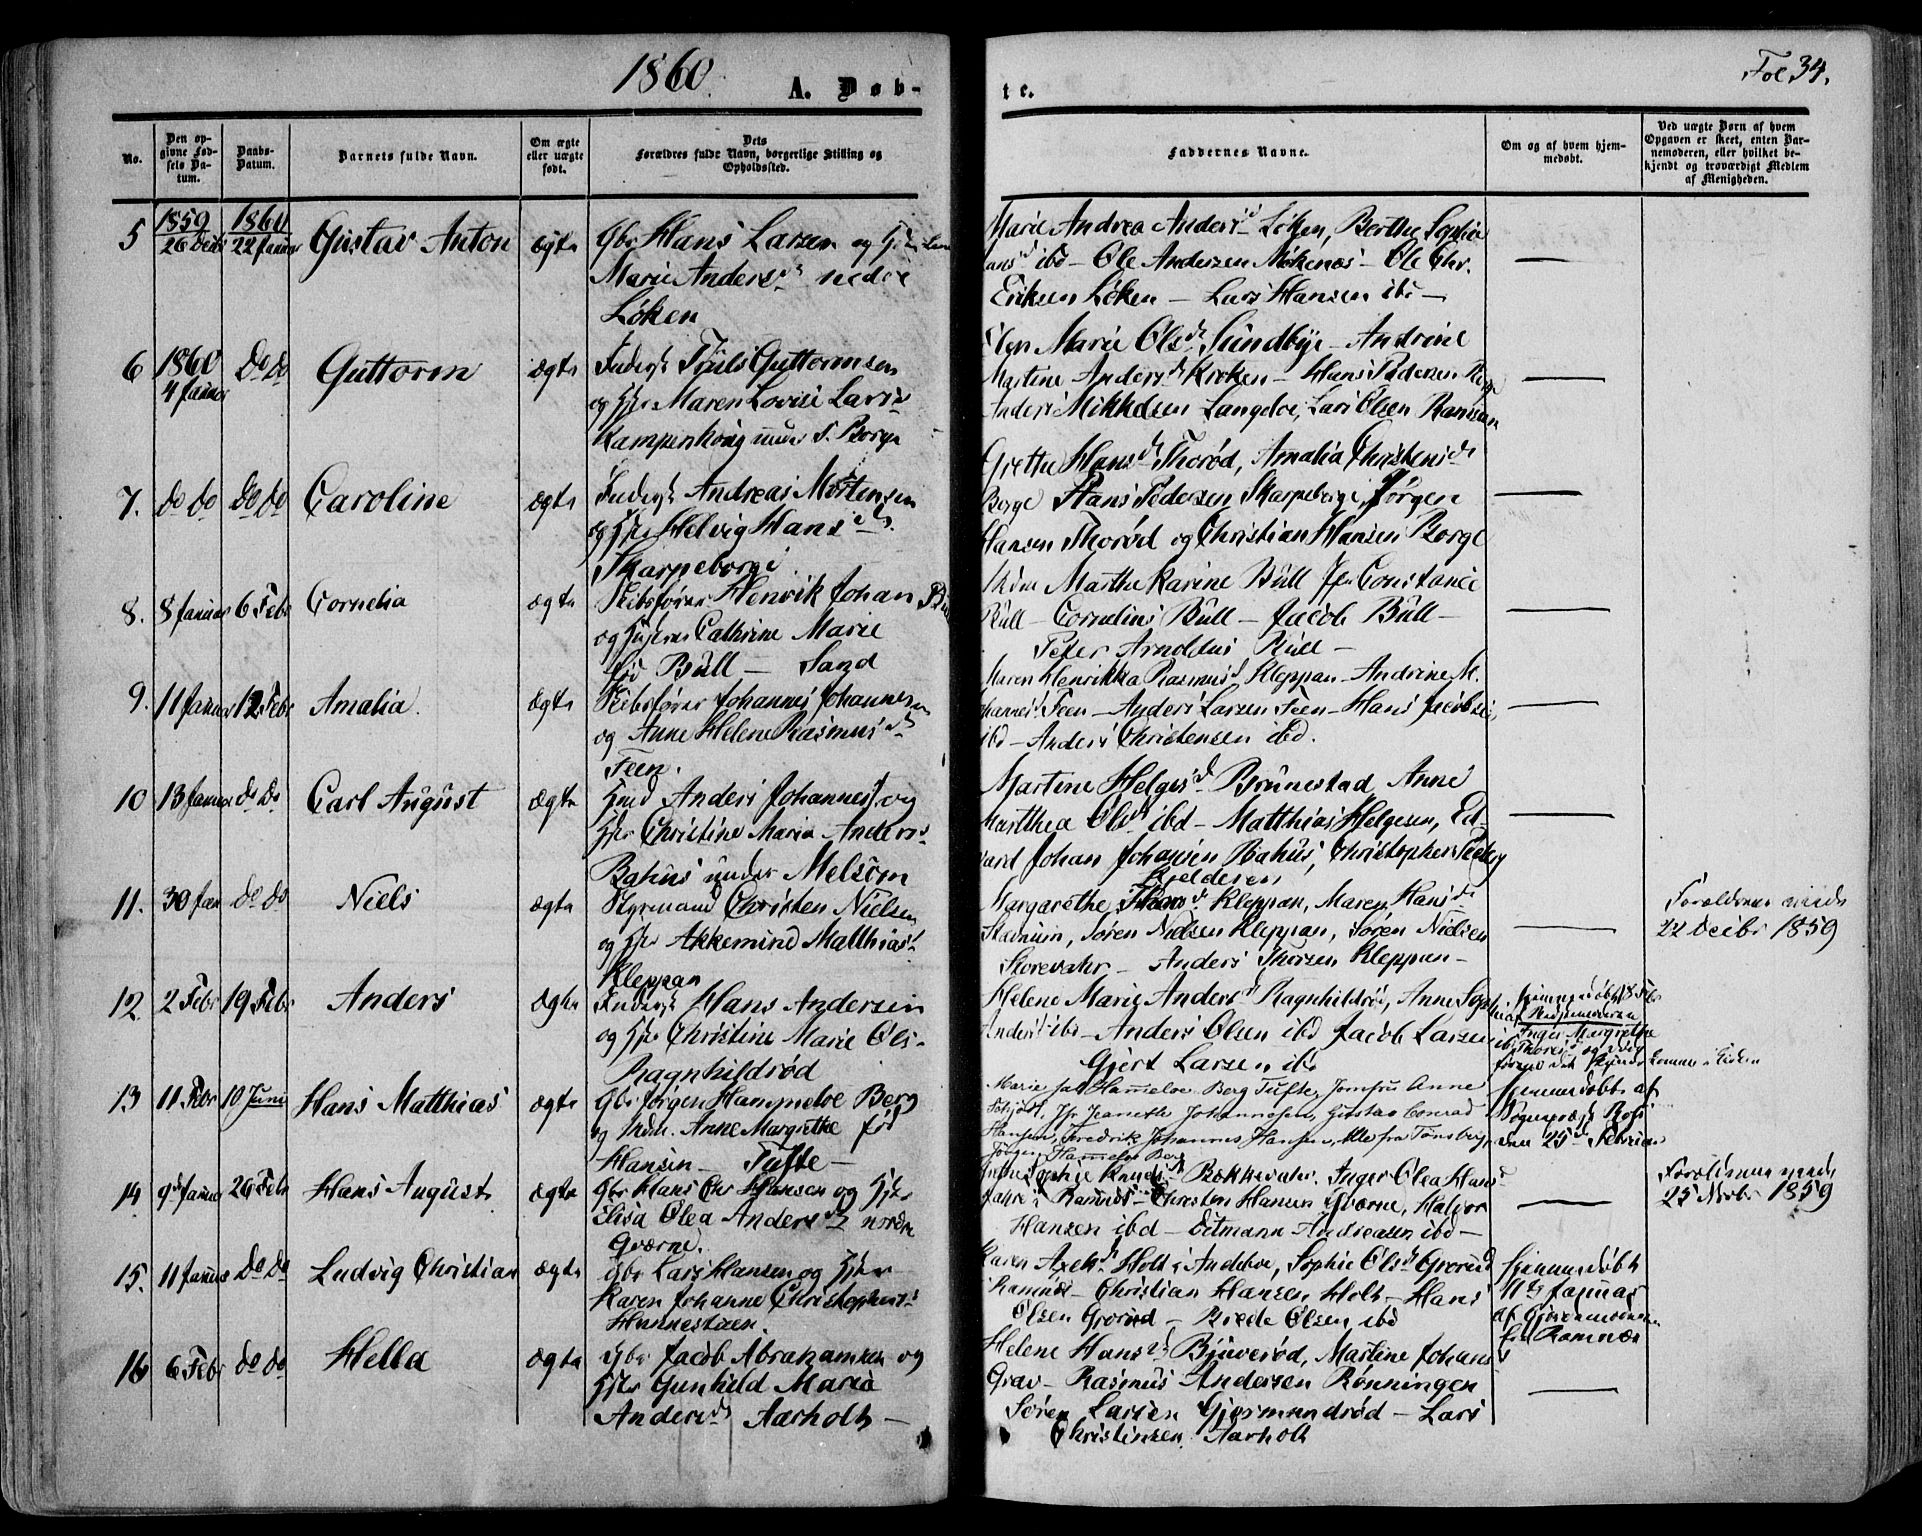 1860. A. Døb-
te.
Fol 34.
No.
Den opgivne Fødsels Datum.
Daabs-Datum.
Barnets fulde Navn.
Om ægte eller uægte født.
Dets Forældres fulde Navn, borgerlige Stilling og Opholdssted.
Faddernes Navne.
Om og af hvem hjemmedøbt.
Ved uægte Børn af hvem Opgaven er skeet, enten Barnemoderen, eller hvilket bekjendt og troværdigt Medlem af Menigheden.
5 1859 26 Decbr 1860 22 Januar Gustav Anton ægte Gbr Hans Larsen og Hstr
Marie Andersd nedre
Løken
Marie Andrea Andersd Løken, Berthe Sophie
Hansd ibd – Ole Andersen Møkenæs – Ole Chr.
Eriksen Løken – Lars Hansen ibd –
6 1860 4 Januar Do Do Guttorm ægte Inderst Truls Guttormsen
og Hstr Maren Lovise Lars-
Kampenhoug under S. Berge
Marie Olsd Sundbye – Andrine
Martine Andersd Kroken – Hans Pedersen
Anders Mikkelsen Langeloe, Lars Olsen Ramsan
7. do do do do Caroline ægte Inderst Andreas Mortensen
og Hstr Helvig Hansd
Skarpeborge.
Grethe Hansd Thorød, Amalia Christensd
Berge Hans Pedersen Skarpeberge, Jørgen
Hansen Thorød og Christian Hansen Berge
8. 8 Januar 6 Febr Cornelia ægte Skibsfører Henrik Johan Bull
og Hustrue Cathrine Marie
fød Büll – Sand
Mdm Marthe Karine Büll Jfr Constance
Büll – Cornelius Büll – Jacob Büll –
Peter Arnoldus Büll –
9. 11 Januar 12 Febr Amalia. ægte Skibsfører Johannes Johannesen
og Anne Helene Rasmusd
Feen.
Maren Henrikka Rasmusd Kleppan – Andrine M.
Johannesd Feen – Anders Larsen Feen – Hans Jacobsen
ibd – Anders Christensen ibd.
10 13 Januar do do Carl August ægte Hmd Anders Johannesd og
Hstr Christine Maria Andersd
Bahus under Melsom
Martine Helgesd Brunestad Anne
Marthea Olsd ibd – Matthias Helgesen, Ed-
vard Johan Johansen Bahus, Christopher
Kjelderen
11. 30 Jan do do Niels ægte Styrmand Christen Nielsen
og Hstr Akkemind Matthiasd
Kleppan
Margarethe Kleppan, Maren Hansd
Stadnum, Søren Nielsen Kleppan, Søren Nielsen
Storevahr – Anders Thorsen Kleppan –
Forældrene viede
22 Decbr 1859
12. 2 Febr 19 Febr Anders ægte Inderst Hans Andersen
og Hstr Christine Marie Ols-
Ragnhildrød
Helene Marie Andersd Ragnhildrød, Anne Sophie
Andersd ibd – Anders Olsen ibd Jacob Larsen
ibd Gjert Larsen ibd
Hjemmedøbt 18 Febr
af
Inger Margrethe
13 11 Febr 10 Juni Hans Matthias ægte Gbr Jørgen Hammeloe Berg
og Mdm. Anne Margrethe fød
Hansen – Tufte –
Marie Hammeloe Berg Tufte, Jomfru Anne
Jfr Jeanette Johannesen, Gustav Conrad
Hansen, Fredrik Johannes Hansen, Alle fra Tønsberg
Jørgen Hammeloe Berg
Hjemmedøbt af
Sognepræst
den 25de Februar
14 9de Januar 26 Febr Hans August ægte Gbr Hans Chr Hansen og Hstr
Elisa Olea Andersd nordre
Gværne.
Sophie Knudsd Bakkevahr, Inger Olea Hansd
Ramnæs – Christen Hansen Gværne, Halvor
Hansen ibd – Ditmann Andreasen ibd –
Forældrene viede
25 Novbr 1859
15. 11 Januar Do Do Ludvig Christian ægte Gbr Lars Hansen og Hstr
Karen Johanne Christophersd
Hunnestaen.
Karen Axelsd Holt i Andebue, Sophie Olsd Grorud
Ramnæs – Christian Hansen Holt – Hans
Olsen Grorud – Brede Olsen ibd
Hjemmedøbt
11te Januar
af Gjordemoderen
fra Ramnæs
16 6 Febr do do Hella ægte Gbr Jacob Abrahamsen og
Hstr Gunhild Maria
Andersd Aarholt –
Helene Hansd Bjuverød, Martine Johansd
Grav – Rasmus Andersen Rønningen
Søren Larsen Gjermundrød – Lars
Christensen Aarholt